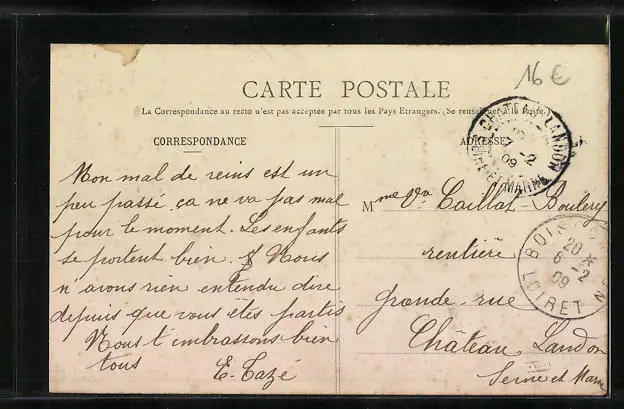 16 €
CARTE POSTALE
La Correspondance au recto n'est pas acceptée par tous les Pays Etrangers. (Se renseigner à la Poste.)
CORRESPONDANCE
Mon mal de reins est un
peu passé ça ne va pas mal
pour le moment. Les enfants
se portent bien. Nous
n'avons rien entendu dire
depuis que vous êtes partis
Nous t'embrassons bien
tous
E. Tazé
ADRESSE
Mme Vve Caillat-Boulery
rentière
grande rue
Château Landon
Seine et Marne
CHATEAU-LANDON
7-2
09
SEINE-ET-MARNE
20
6-2
09
LOIRET